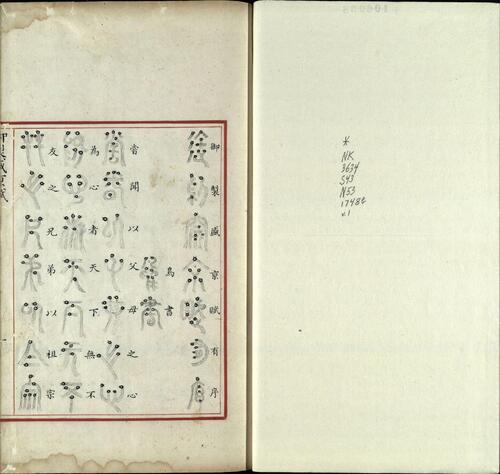 御製盛京賦有序
鳥書
嘗聞以父母之心
為心者天下無不
友之兄弟以祖宗
*
NK
3634
S43
N53
1748c
v.1